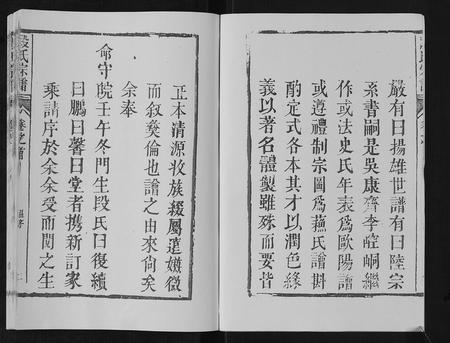 嚴有曰揚雄世譜有曰陸宗
系書嗣是吳康齊李崆峒繼
作或法史氏年表爲歐陽譜
或遵禮制宗圖爲蘓氏譜斟
酌定式各本其才以潤色緣
義以著名體製雖殊而要皆
正本清源收族綴屬遠嫌微
而叙彜倫也譜之由來尙矣
余奉
命守皖壬午冬門生段氏曰復續
曰鵬曰馨曰堂者携新訂家
乘請序於余余受而閱之生
段氏宗譜
卷之首